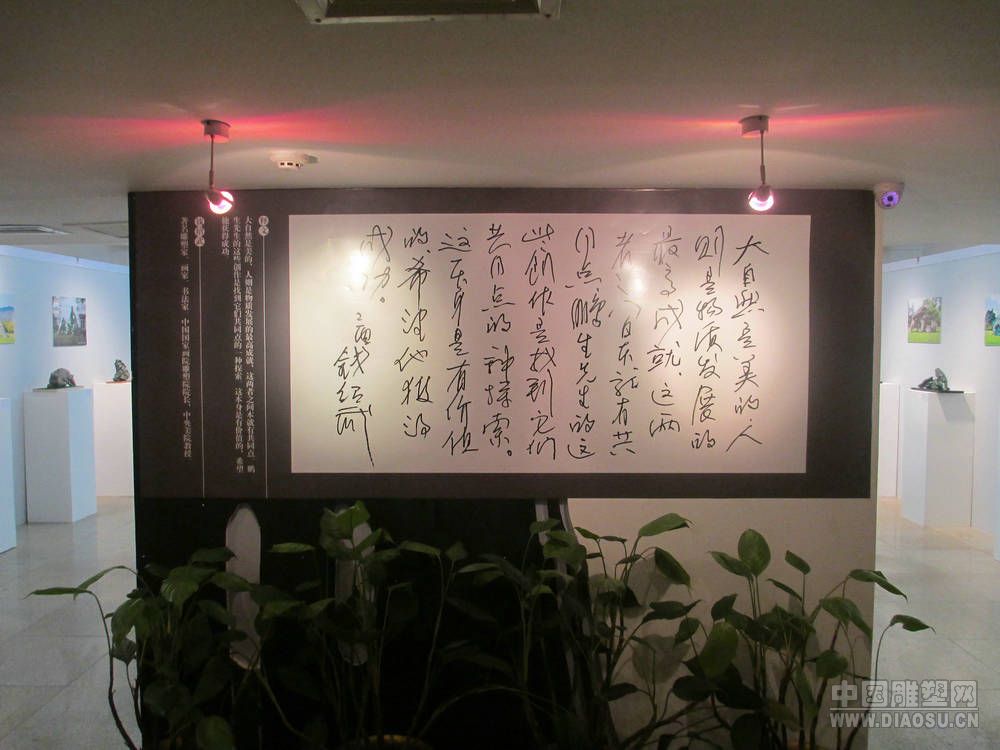 大自然是美的、人
则是物质发展的
最高成就这两
者之间本就有共
同点鹏生先生的这
些创作是找到它们
共同点的一种探索。
这本身是有价值
的希望他获得
成功。
钱绍武
释文
大自然是美的,人则是物质发展的最高成就,这两者之间本就有共同点,鹏
生先生的这些创作是找到它们共同点的一种探索,这本身是有价值的,希望
他获得成功
钱绍武
著名雕塑家 画家 书法家 中国国家画院雕塑院院长、中央美院教授
中国雕塑网
WWW.DIAOSU.CN